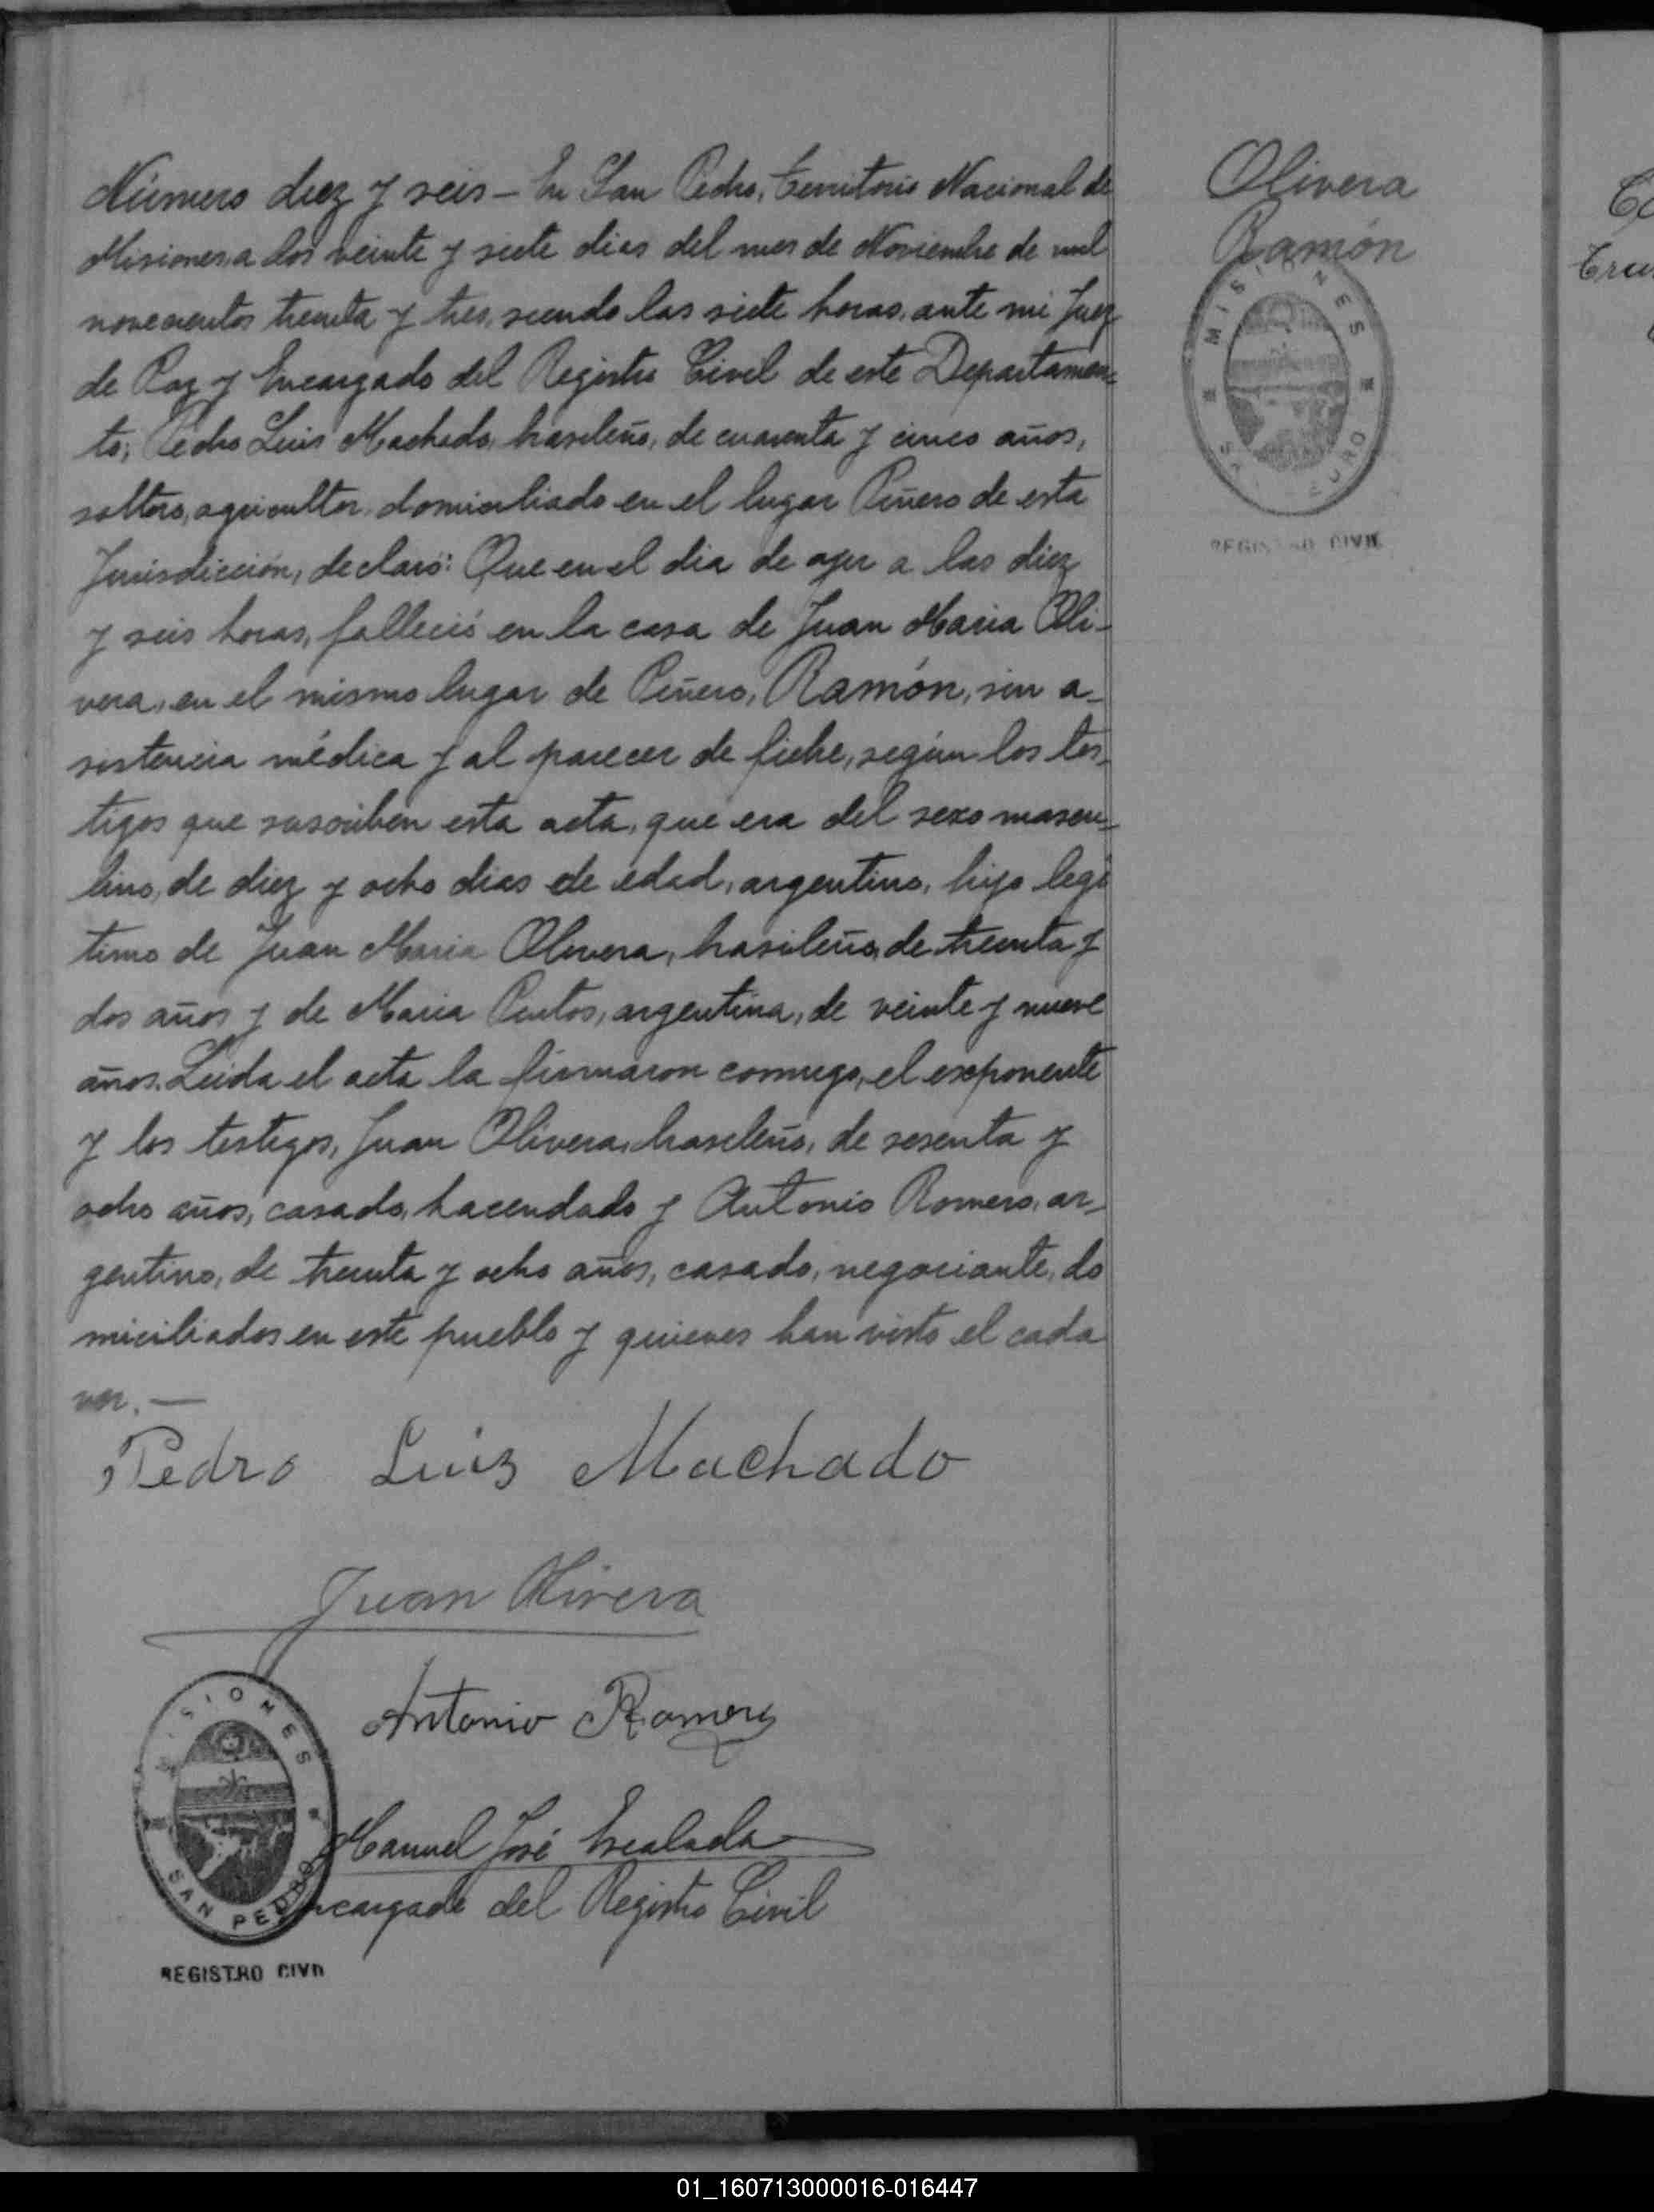 Número diez y seis - En San Pedro, Territorio Nacional de
Misiones, a los veinte y siete dias del mes de Noviembre de mil
novecientos treinta y tres, siendo las siete horas, ante mi Juez
de Paz y Encargado del Registro Civil de este Departamen-
to, Pedro Luis Machado, brasileño, de cuarenta y cinco años,
soltero, agricultor, domiciliado en el lugar Piñero de esta
Jurisdicción, declaró: Que en el dia de ayer a las diez
y seis horas, falleció en la casa de Juan Maria Oli-
vera, en el mismo lugar de Piñero, Ramón, sin a-
sistencia médica y al parecer de fiebre, según los tes-
tigos que suscriben esta acta, que era del sexo mascu-
lino, de diez y ocho dias de edad, argentino, hijo legi
timo de Juan Maria Olivera, brasileño, de treinta y
dos años y de Maria Pintos, argentina, de veinte y nueve
años. Leida el acta la firmaron conmigo, el exponente
y los testigos, Juan Olivera, brasileño, de sesenta y
ocho años, casado, hacendado y Antonio Romero, ar-
gentino, de treinta y ocho años, casado, negociante, do
miciliados en este pueblo y quienes han visto el cada
ver. —
Pedro Luis Machado
Juan Olivera
Antonio Romero
Manuel José
Encargado del Registro Civil
MISIONES
SAN PEDRO
REGISTRO CIVIL
Olivera
Ramón
MISIONES
REGISTRO CIVIL
01_160713000016-016447